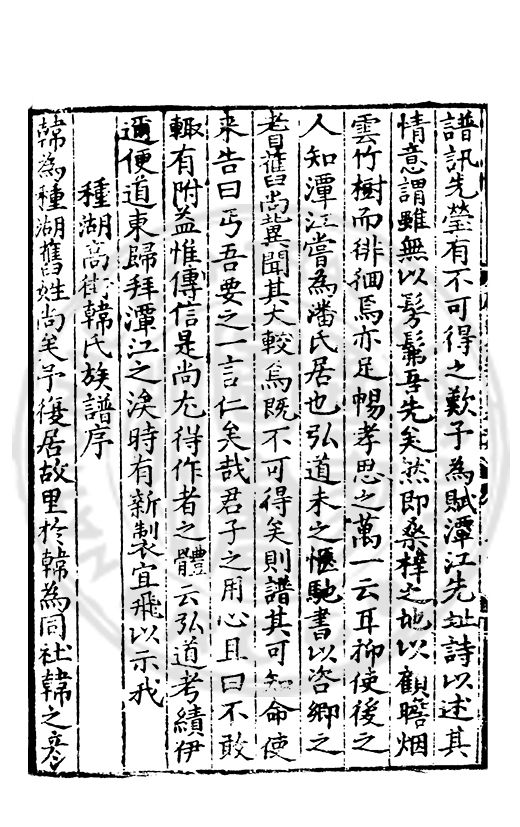 譜訊先塋有不可得之歎予為賦潭江先址詩以述其
情意謂雖無以髣髴吾先矣然即桑梓之地以顧瞻烟
雲竹樹而徘徊焉亦足暢孝思之萬一云耳抑使後之
人知潭江嘗為潘氏居也弘道未之愜馳書以咨鄉之
耆舊尚冀聞其大較焉既不可得矣則譜其可知命使
来告曰丐吾要之一言仁矣哉君子之用心且曰不敢
輙有附益惟傳信是尚尤得作者之體云弘道考績伊
邇便道東歸拜潭江之涘時有新製宜飛以示我
種湖高街韓氏族譜序
韓為種湖舊姓尚矣予復居故里於韓為同社韓之彦